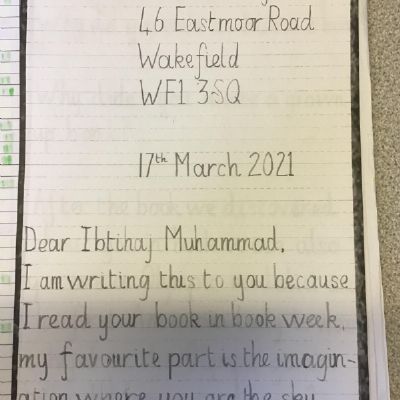 46 Eastmoor Road
Wakefield
WF1 3SQ
17th March 2021
Dear Ibtihaj Muhammad,
I am writing this to you because
I read your book in book week,
my favourite part is the imagin-
ation where you are the sky